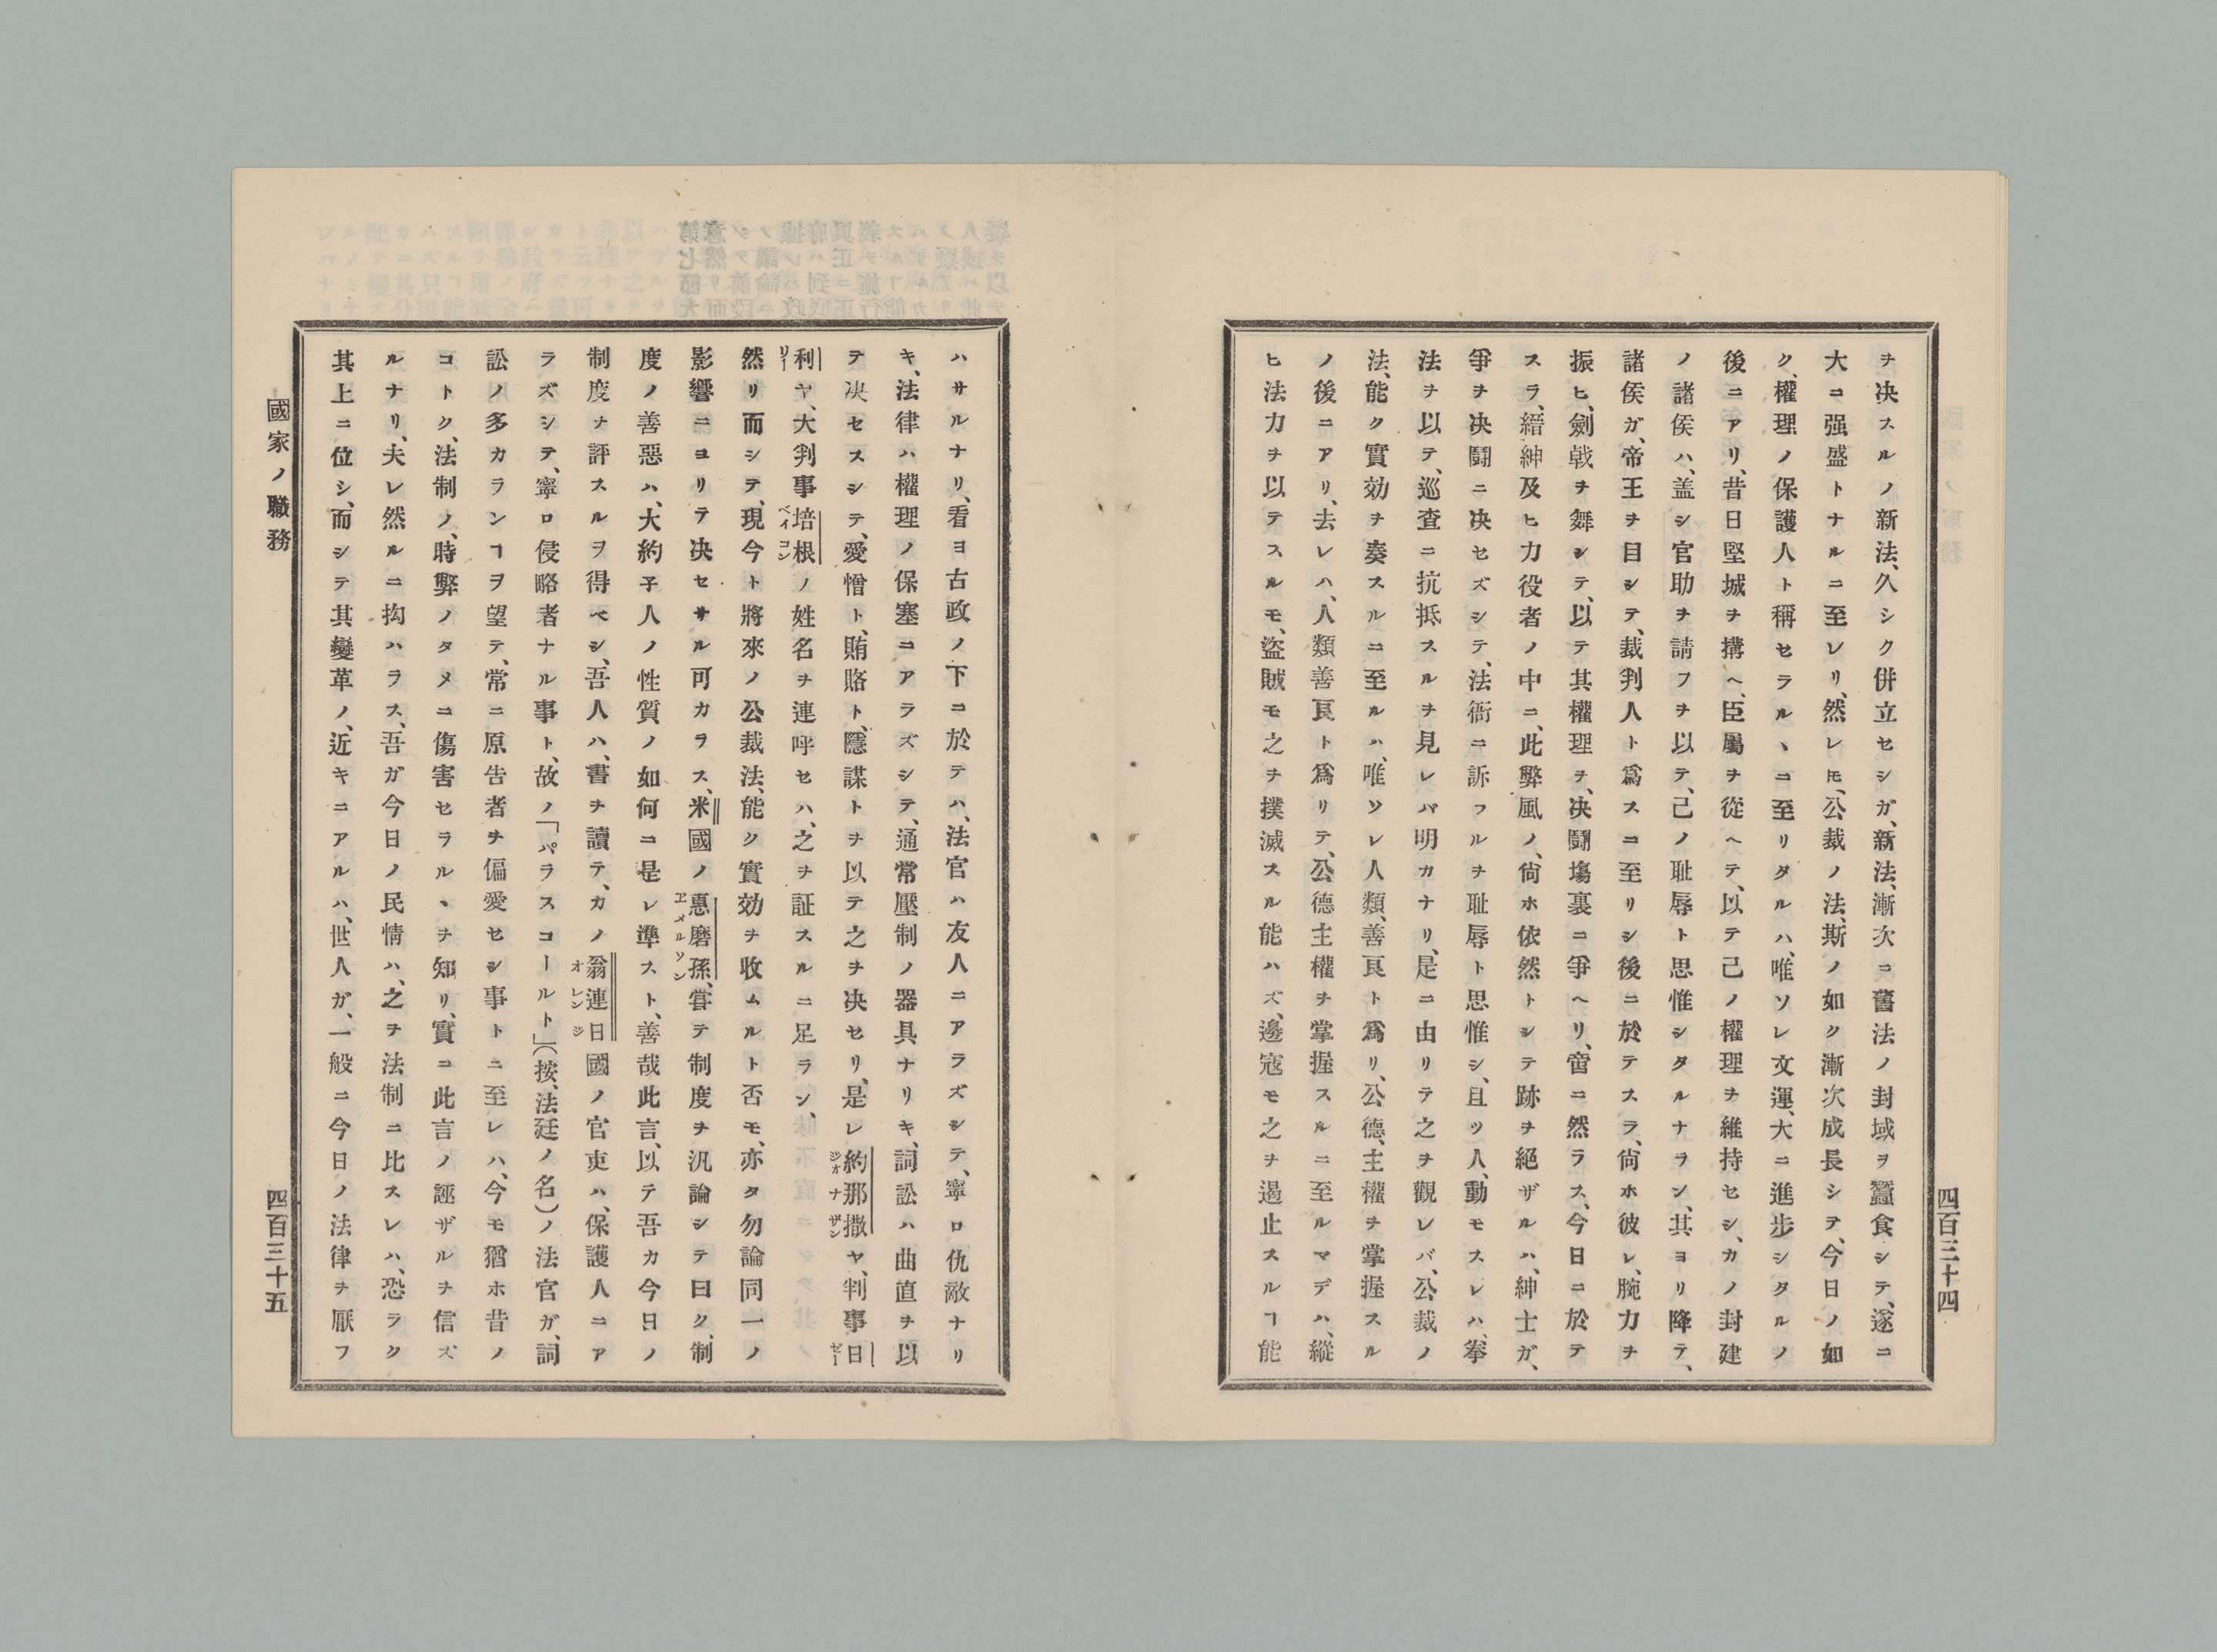 ヲ决スルノ新法、久シク併立セシガ、新法、漸次ニ舊法ノ封域ヲ蠶食シテ、遂ニ
大ニ强盛トナルニ至レリ、然レ𪜈、公裁ノ法、斯ノ如ク漸次成長シテ、今日ノ如
ク、權理ノ保護人ト稱セラルヽニ至リタルハ、唯ソレ文運、大ニ進歩シタルノ
後ニアリ、昔日堅城ヲ搆ヘ、臣屬ヲ從ヘテ、以テ己ノ權理ヲ維持セシ、カノ封建
ノ諸侯ハ、盖シ官助ヲ請フヲ以テ、己ノ耻辱ト思惟シタルナラン、其ヨリ降テ、
諸侯ガ、帝王ヲ目シテ、裁判人ト爲スニ至リシ後ニ於テスラ、尙ホ彼レ、腕力ヲ
振ヒ、劍戟ヲ舞シテ、以テ其權理ヲ、决鬪塲裏ニ爭ヘリ、啻ニ然ラス、今日ニ於テ
スラ、縉紳及ヒ力役者ノ中ニ、此弊風ノ、尙ホ依然トシテ跡ヲ絕ザルハ、紳士ガ、
爭ヲ决鬪ニ决セズシテ、法衙ニ訴フルヲ耻辱ト思惟シ、且ツ人、動モスレハ、拳
法ヲ以テ、巡査ニ抗抵スルヲ見レバ明カナリ、是ニ由リテ之ヲ觀レバ、公裁ノ
法、能ク實効ヲ奏スルニ至ルハ、唯ソレ人類、善良ト爲リ、公德、主權ヲ掌握スル
ノ後ニアリ、去レハ、人類善良ト爲リテ、公德主權ヲ掌握スルニ至ルマデハ、縱
ヒ法力ヲ以テスルモ、盜賊モ之ヲ撲滅スル能ハズ、邊寇モ之ヲ遏止スルヿ能
四百三十四
ハサルナリ、看ヨ古政ノ下ニ於テハ、法官ハ友人ニアラズシテ、寧ロ仇敵ナリ
キ、法律ハ權理ノ保塞ニアラズシテ、通常壓制ノ器具ナリキ、詞訟ハ曲直ヲ以
テ决セスシテ、愛憎ト、賄賂ト、隱謀トヲ以テ之ヲ决セリ、是レ約那撒ジオナザンヤ、判事日ゼー
利リーヤ、大判事培根ベイコンノ姓名ヲ連呼セハ、之ヲ証スルニ足ラン、
然リ而シテ、現今ト將來ノ公裁法、能ク實効ヲ收ムルト否モ、亦タ勿論同一ノ
影響ニヨリテ决セサル可カラス、米國ノ惠磨孫ヱメルソン、甞テ制度ヲ汎論シテ曰ク、制
度ノ善惡ハ、大約子人ノ性質ノ如何ニ是レ準スト、善哉此言、以テ吾カ今日ノ
制度ヲ評スルヲ得ベシ、吾人ハ、書ヲ讀テ、カノ翁連日オレンジ國ノ官吏ハ、保護人ニア
ラズシテ、寧ロ侵略者ナル事ト、故ノ「パラスコールト」(按、法廷ノ名)ノ法官ガ、詞
訟ノ多カランヿヲ望テ、常ニ原告者ヲ偏愛セシ事トニ至レハ、今モ猶ホ昔ノ
コトク、法制ノ、時弊ノタメニ傷害セラルヽヲ知リ、實ニ此言ノ誣ザルヲ信ズ
ルナリ、夫レ然ルニ拘ハラス、吾ガ今日ノ民情ハ、之ヲ法制ニ比スレハ、恐ラク
其上ニ位シ、而シテ其變革ノ、近キニアルハ、世人ガ、一般ニ今日ノ法律ヲ厭フ
國家ノ職務
四百三十五